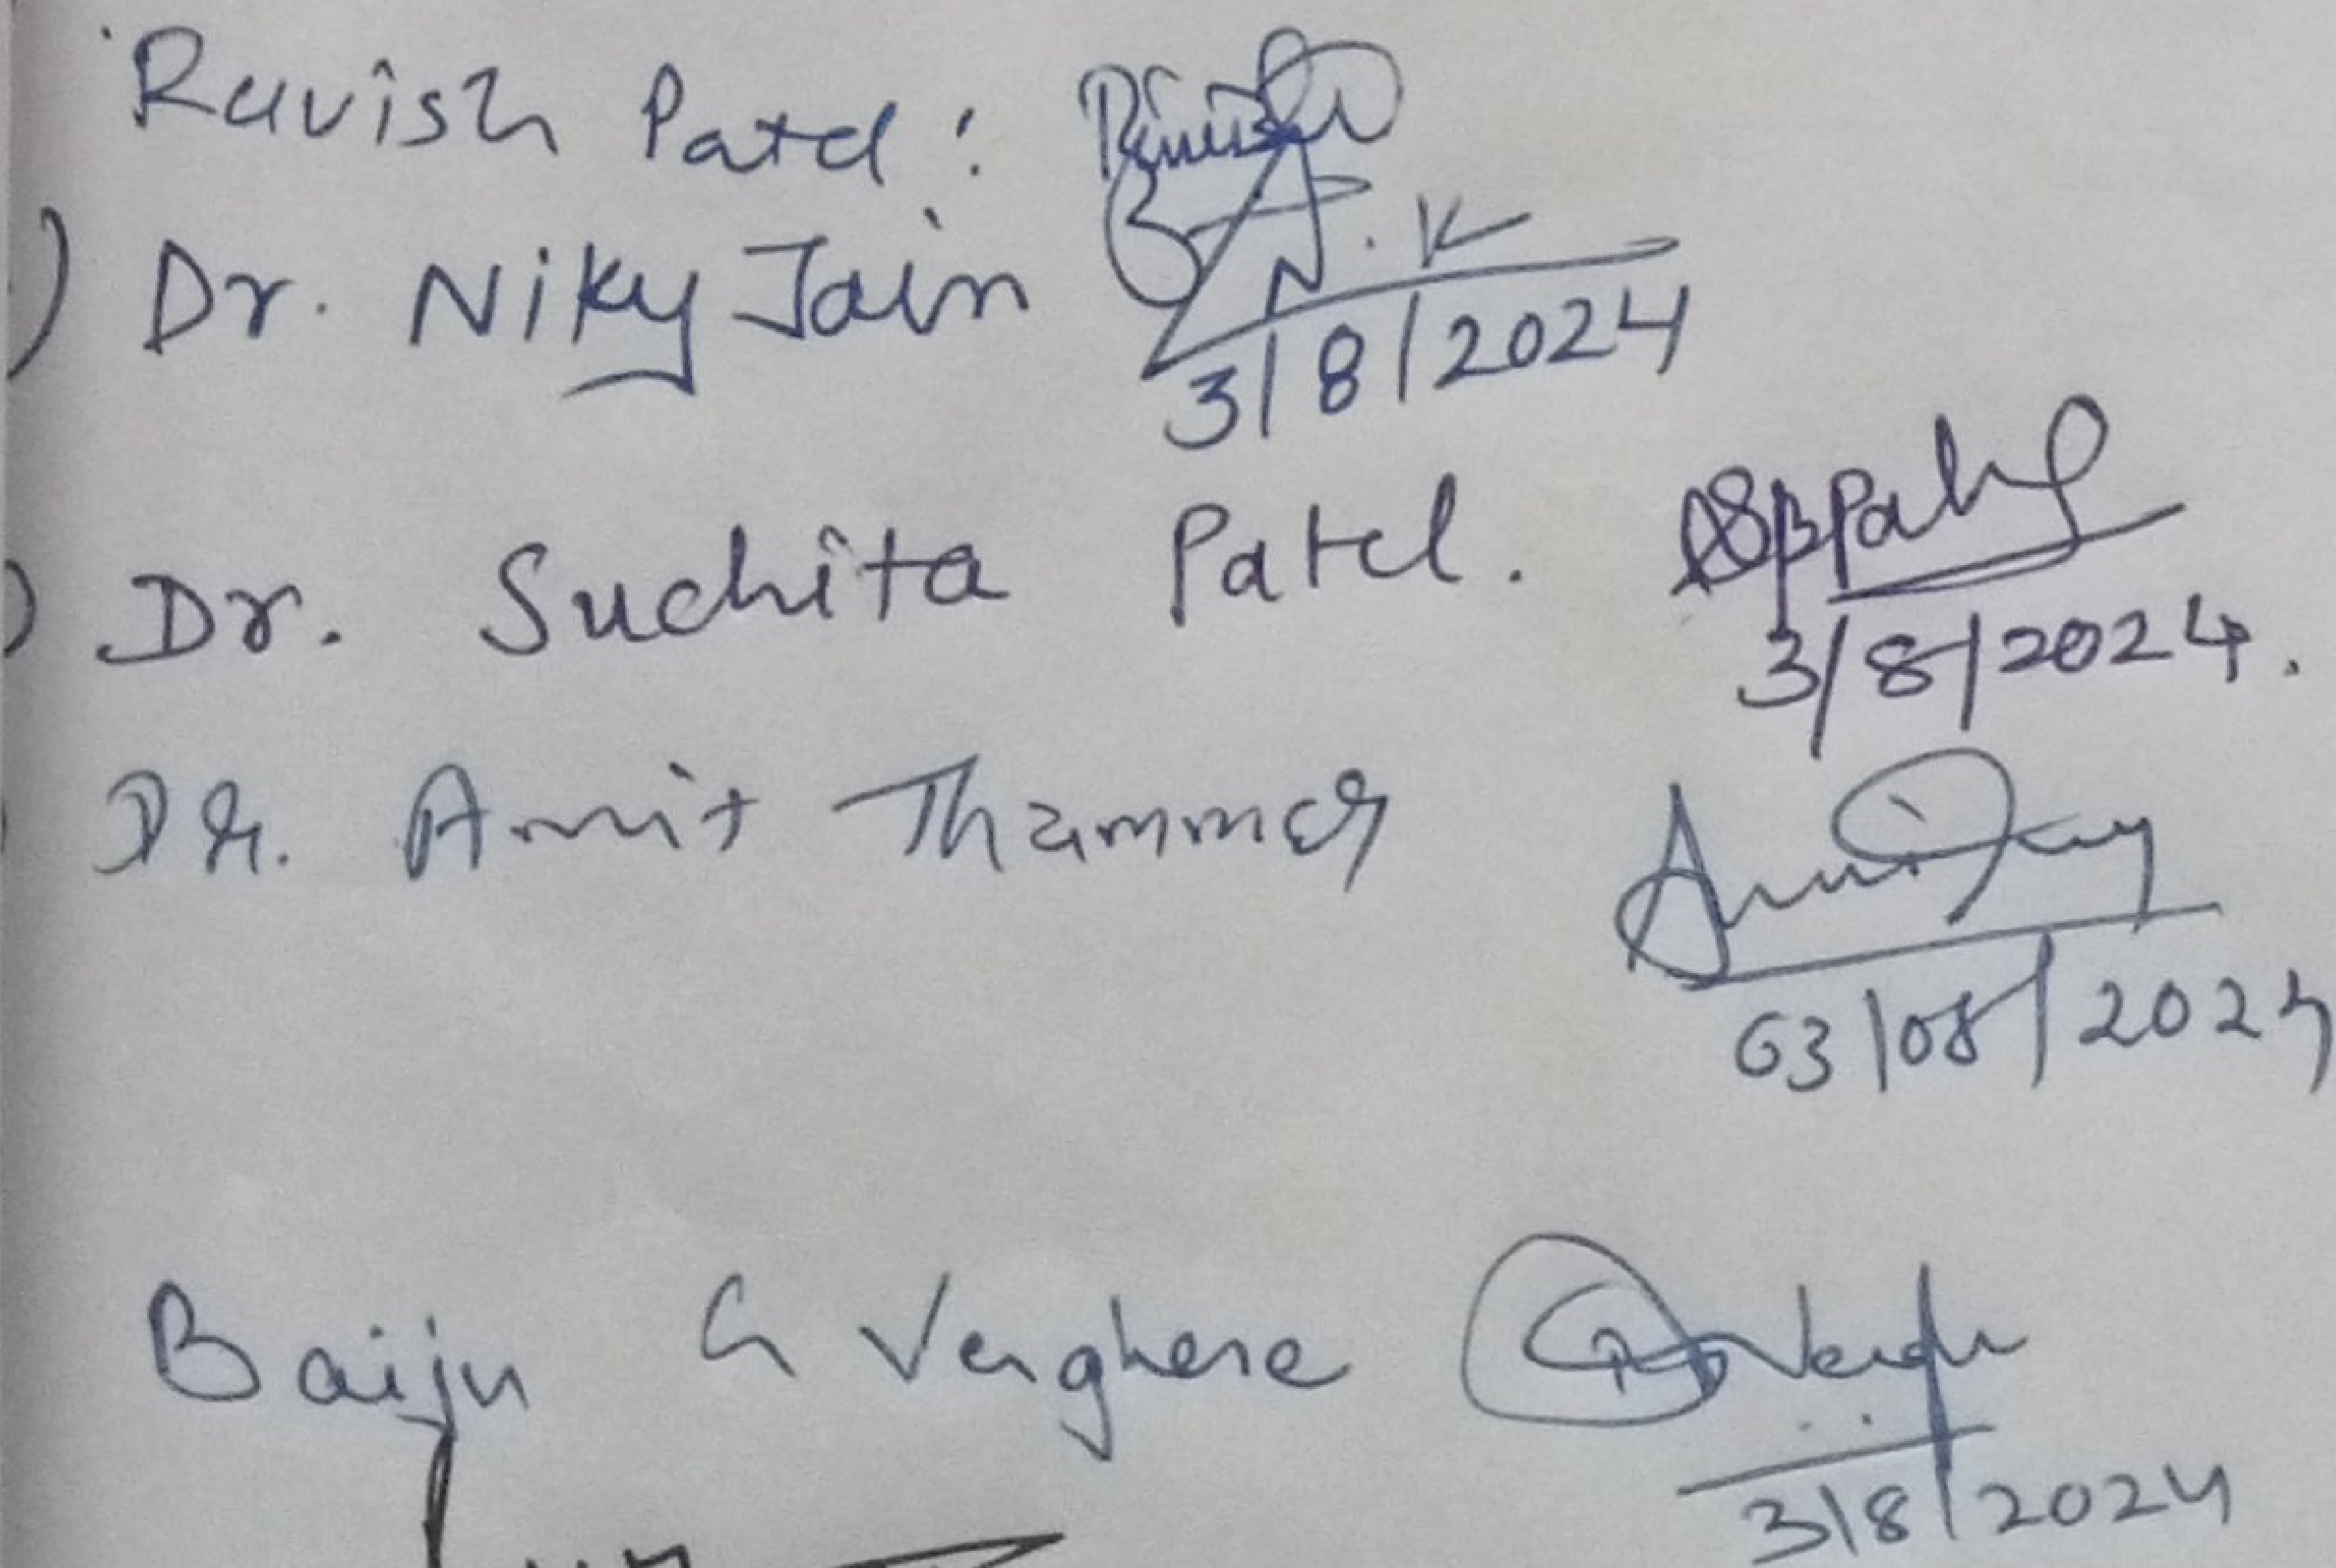 Ravish Patel :
) Dr. Niky Jain N.K
3/8/2024
) Dr. Suchita Patel. SBPatel
3/8/2024.
Dr. Amit Thammer
03/08/2024
Baiju G Verghese
3/8/2024